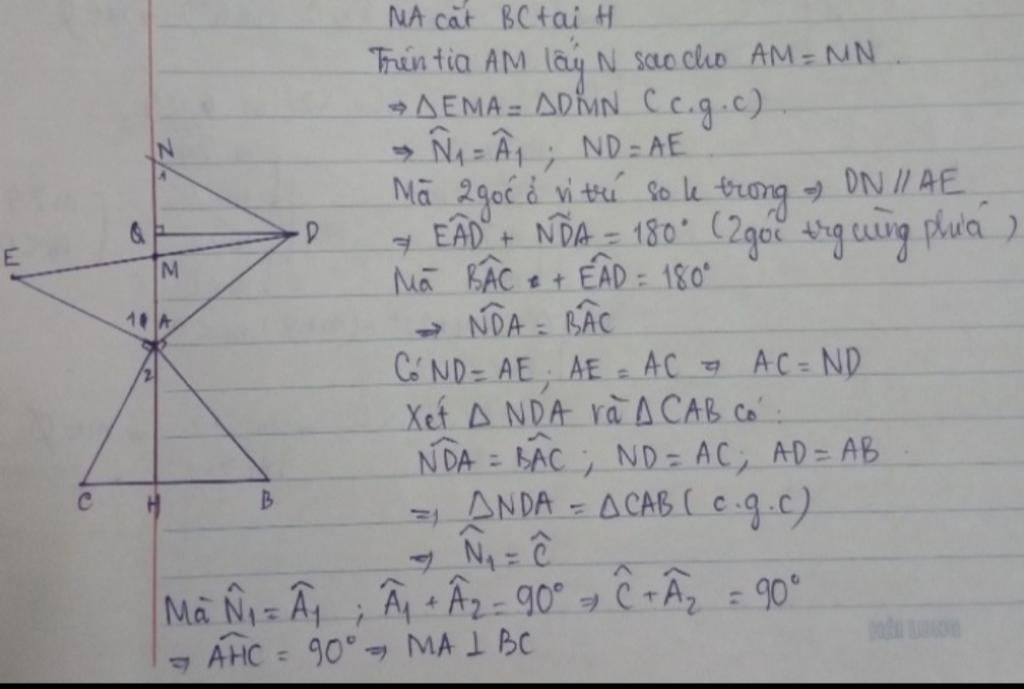 MA cắt BC tại H
Trên tia AM lấy N sao cho AM = MN.
⇒ ΔEMA = ΔDMN (c.g.c)
⇒ N̂₁ = Â₁ ; ND = AE
Mà 2 góc ở vị trí so le trong ⇒ DN // AE
⇒ EÂD + ND̂A = 180° (2 góc trg cùng phía)
Mà BÂC + EÂD = 180°
⇒ ND̂A = BÂC
Có ND = AE ; AE = AC ⇒ AC = ND
Xét Δ NDA và Δ CAB có :
ND̂A = BÂC ; ND = AC ; AD = AB
⇒ ΔNDA = ΔCAB ( c.g.c)
⇒ N̂₁ = Ĉ
Mà N̂₁ = Â₁ ; Â₁ + Â₂ = 90° ⇒ Ĉ + Â₂ = 90°
⇒ AĤC = 90° ⇒ MA ⊥ BC
N
1
Q
D
E
M
1 A
2
C H B